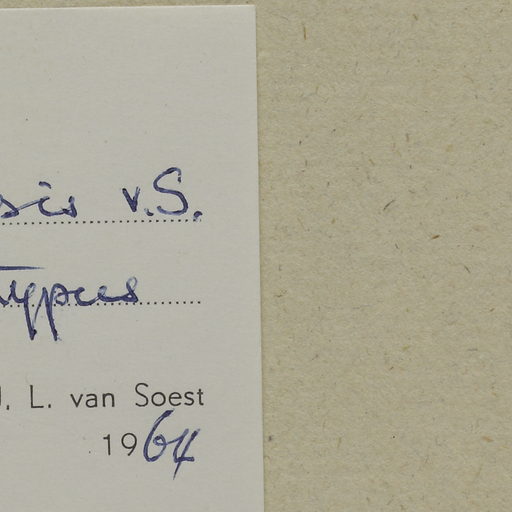 sis v.S.
Typus
J. L. van Soest
1964